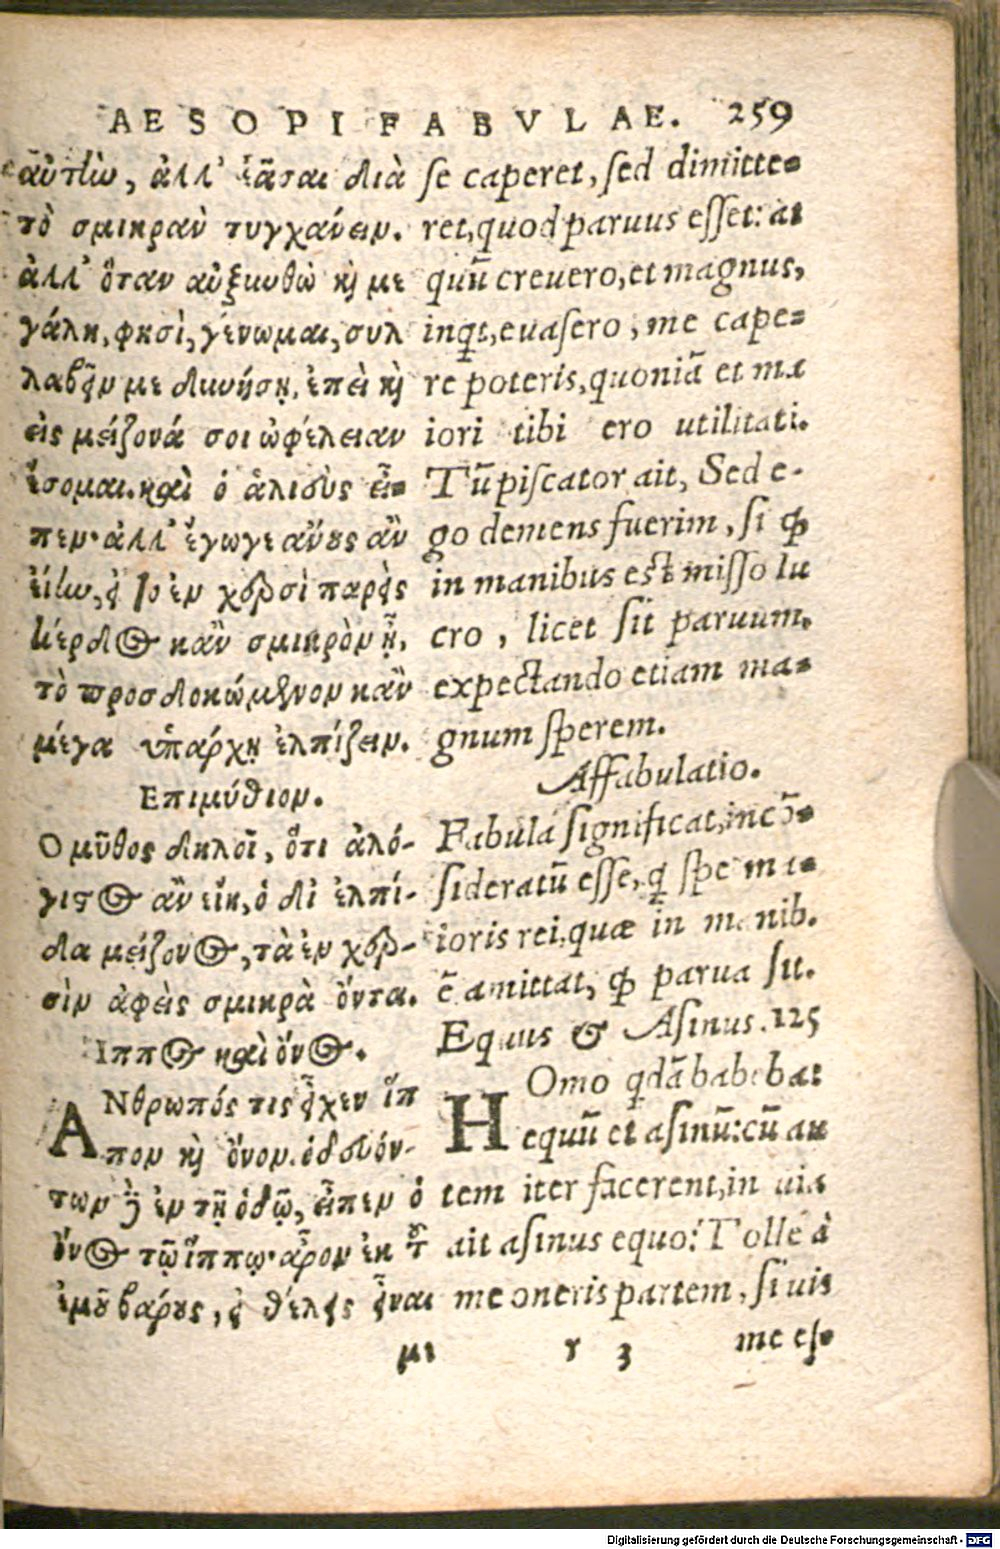 AESOPI FABVLAE. 259
αὐτὴν, ἀλλ' ἐᾶσαι διὰ
τὸ σμικρὰν τυγχάνειν.
ἀλλ' ὅταν αὐξυνθῶ καὶ με
γάλη, φησὶ, γένωμαι, συλ
λαβεῖν με δυνήσῃ, ἐπεὶ καὶ
εἰς μείζονά σοι ὠφέλειαν
ἔσομαι. καὶ ὁ ἁλιεὺς εἶ-
πεν· ἀλλ' ἔγωγε ἄνους ἂν
εἴην, εἰ τὸ ἐν χερσὶ παρεὶς
κέρδος κἂν σμικρὸν ᾖ,
τὸ προσδοκώμενον κἂν
μέγα ὑπάρχῃ ἐλπίζειν.
Επιμύθιον.
Ο μῦθος δηλοῖ, ὅτι ἀλό-
γιστος ἂν εἴη, ὁ δι' ἐλπί-
δα μείζονος, τὰ ἐν χερ-
σὶν ἀφεὶς σμικρὰ ὄντα.
Ἵππος καὶ ὄνος.
ΑΝθρωπός τις εἶχεν ἵπ
πον καὶ ὄνον. ὁδευόν-
των δὲ ἐν τῇ ὁδῷ, εἶπεν ὁ
ὄνος τῷ ἵππῳ· ἆρον ἐκ τοῦ
ἐμοῦ βάρους, εἰ θέλεις εἶναι
με
se caperet, sed dimitte-
ret, quod paruus esset: at
quũ creuero, et magnus,
inqt, euasero, me cape-
re poteris, quoniã et ma
iori tibi ero utilitati.
Tũ piscator ait, Sed e-
go demens fuerim, si ꝙ
in manibus est misso lu
cro, licet sit paruum,
expectando etiam ma-
gnum sperem.
Affabulatio.
Fabula significat, incõ-
sideratũ esse, q spe ma-
ioris rei, quæ in manib.
ẽ amittat, ꝙ parua sit.
Equus & Asinus. 125
HOmo qdã habebat
equũ et asinũ: cũ au
tem iter facerent, in uia
ait asinus equo: Tolle à
me oneris partem, si uis
r 3 me es-
Digitalisierung gefördert durch die Deutsche Forschungsgemeinschaft - DFG